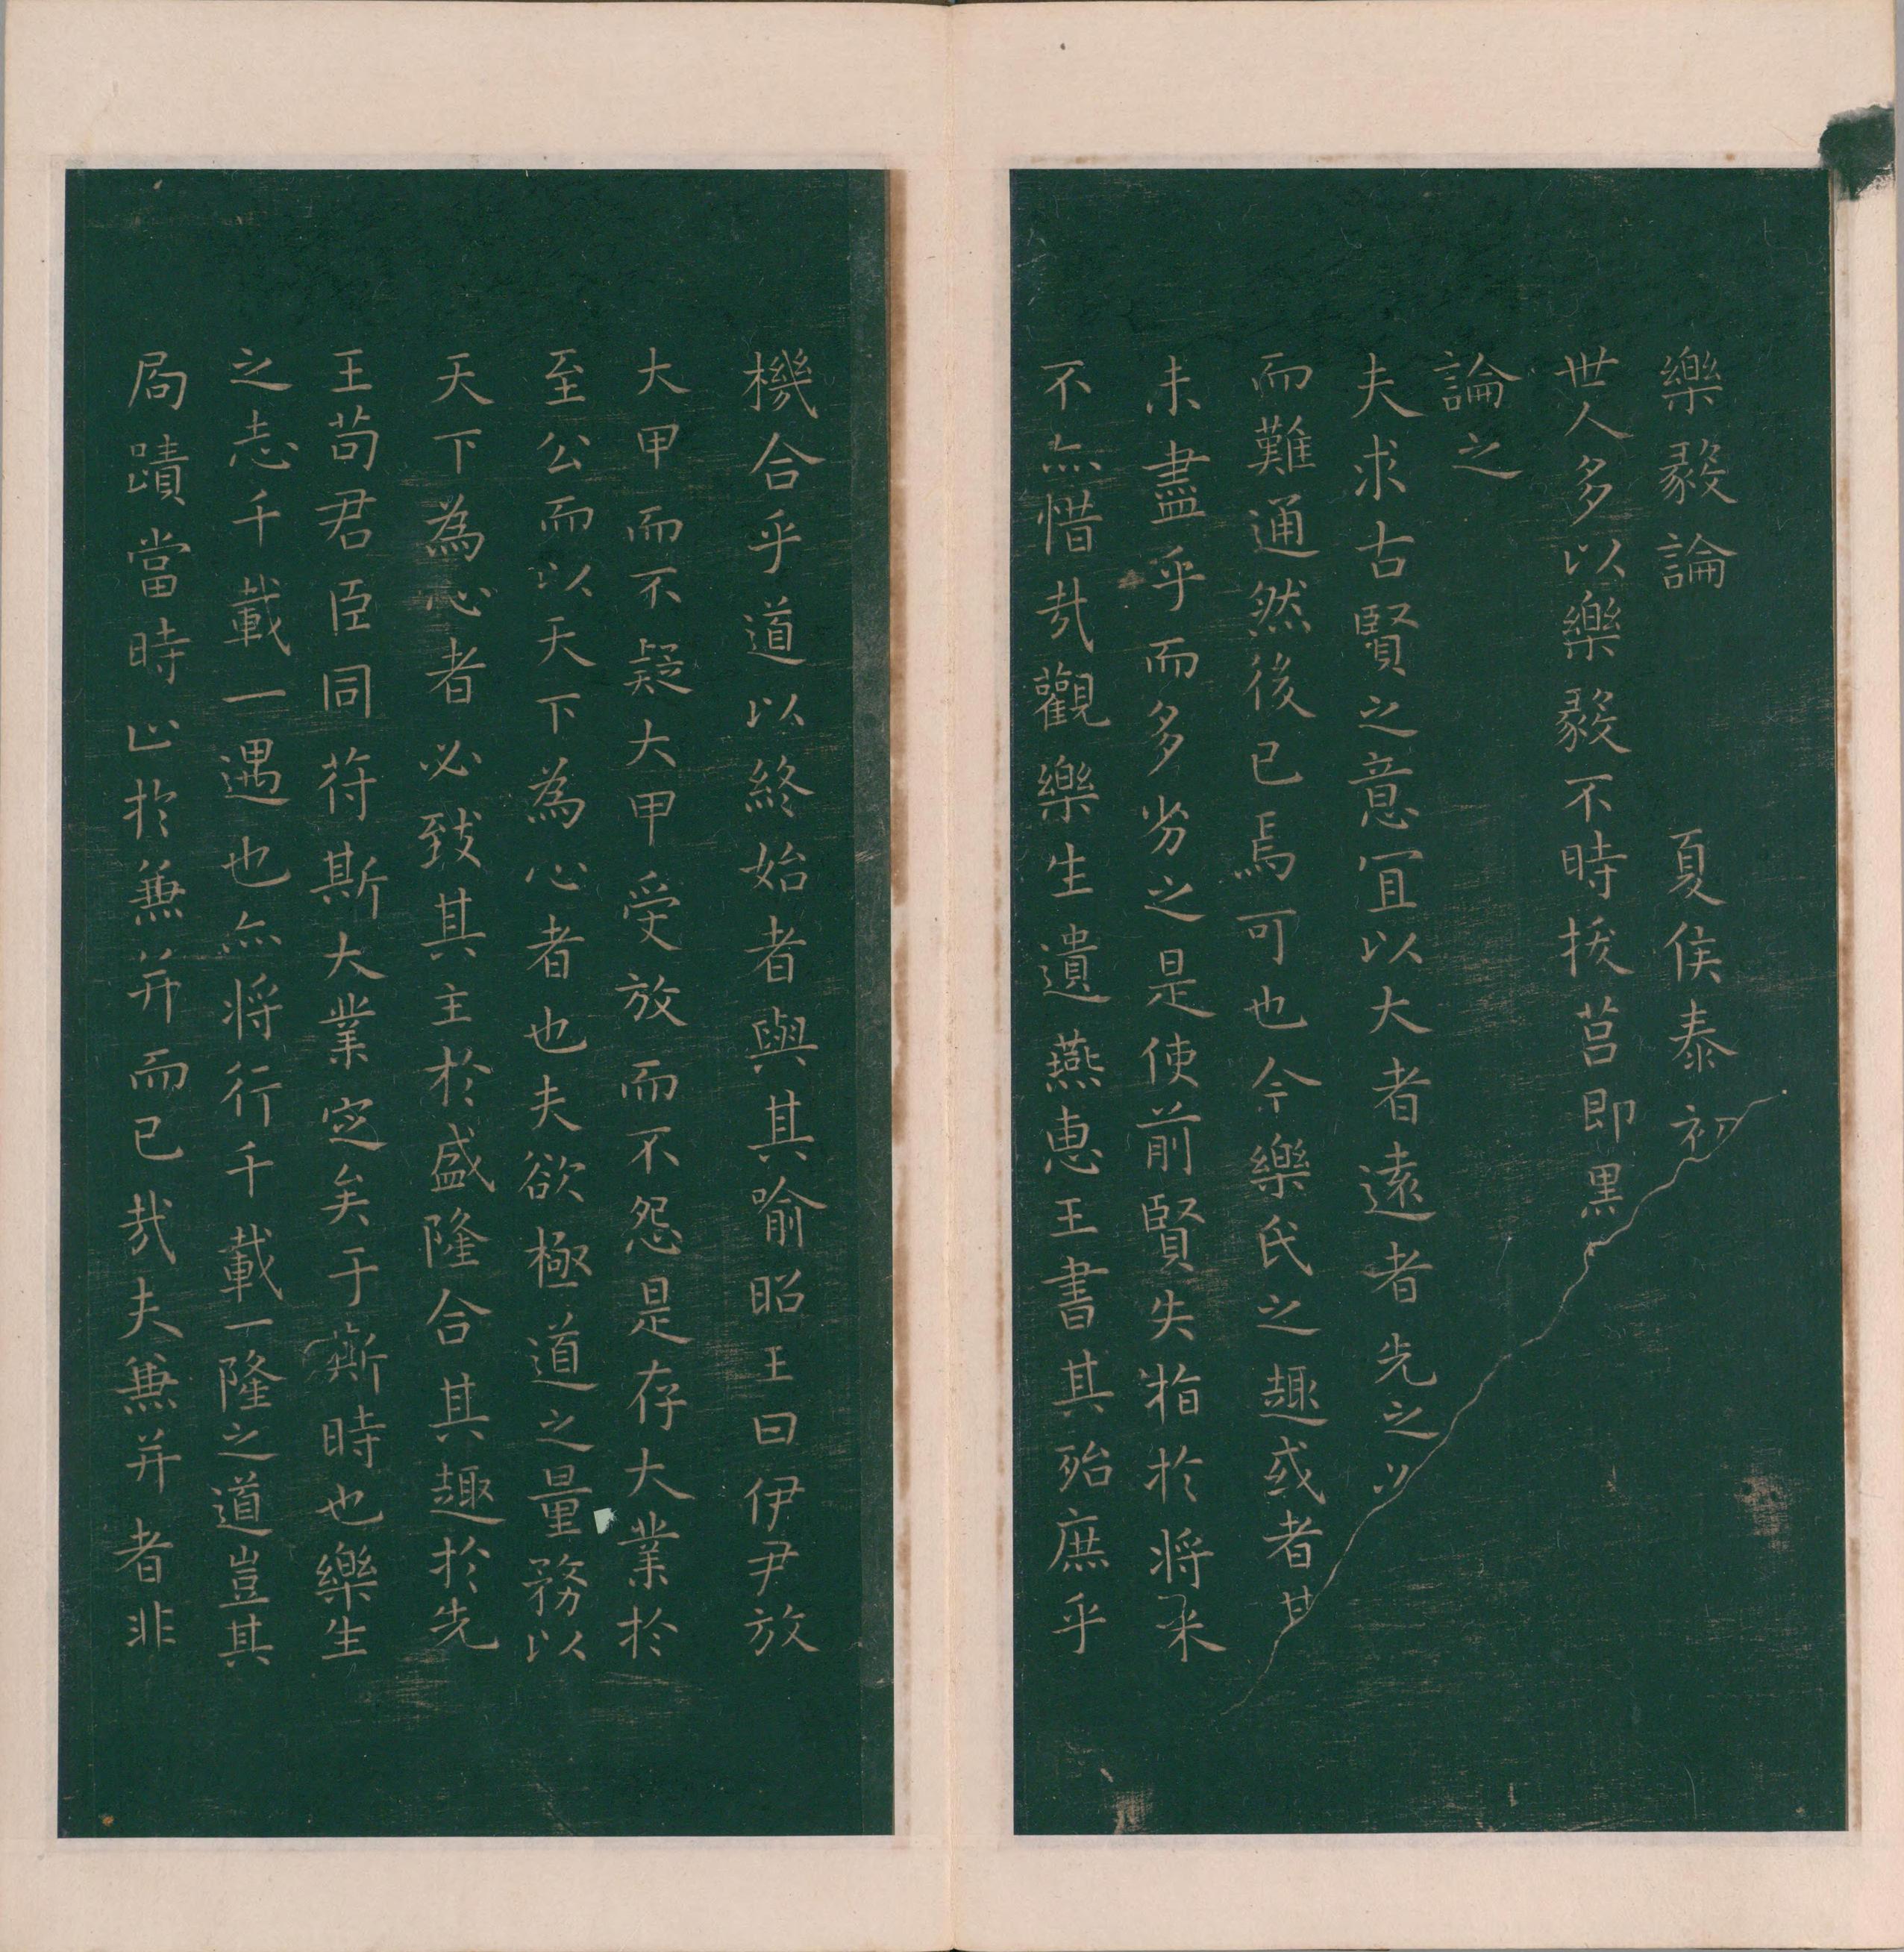 樂毅論　夏侯泰初
世人多以樂毅不時拔莒即黑
論之
夫求古賢之意宜以大者遠者先之必
而難通然後已焉可也今樂氏之趣或者其
未盡乎而多劣之是使前賢失指於将来
不亦惜哉觀樂生遺燕惠王書其殆庶乎
機合乎道以終始者與其喻昭王曰伊尹放
大甲而不疑大甲受放而不怨是存大業於
至公而以天下為心者也夫欲極道之量務以
天下為心者必致其主於盛隆合其趣於先
王苟君臣同符斯大業定矣于斯時也樂生
之志千載一遇也亦将行千載一隆之道豈其
局蹟當時止於兼并而已哉夫兼并者非